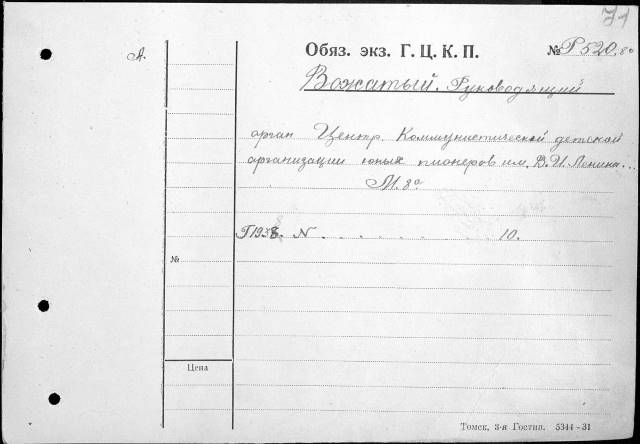 71
А.
Обяз. экз. Г. Ц. К. П. № Р520. 8°
Вожатый. Руководящий
орган Центр. Коммунистической детской
организации юных пионеров им. В. И. Ленина...
М. 8°
Г193 . N . . . . . . 10.
№
Цена
Томск, 3-я Гостип. 5344-31